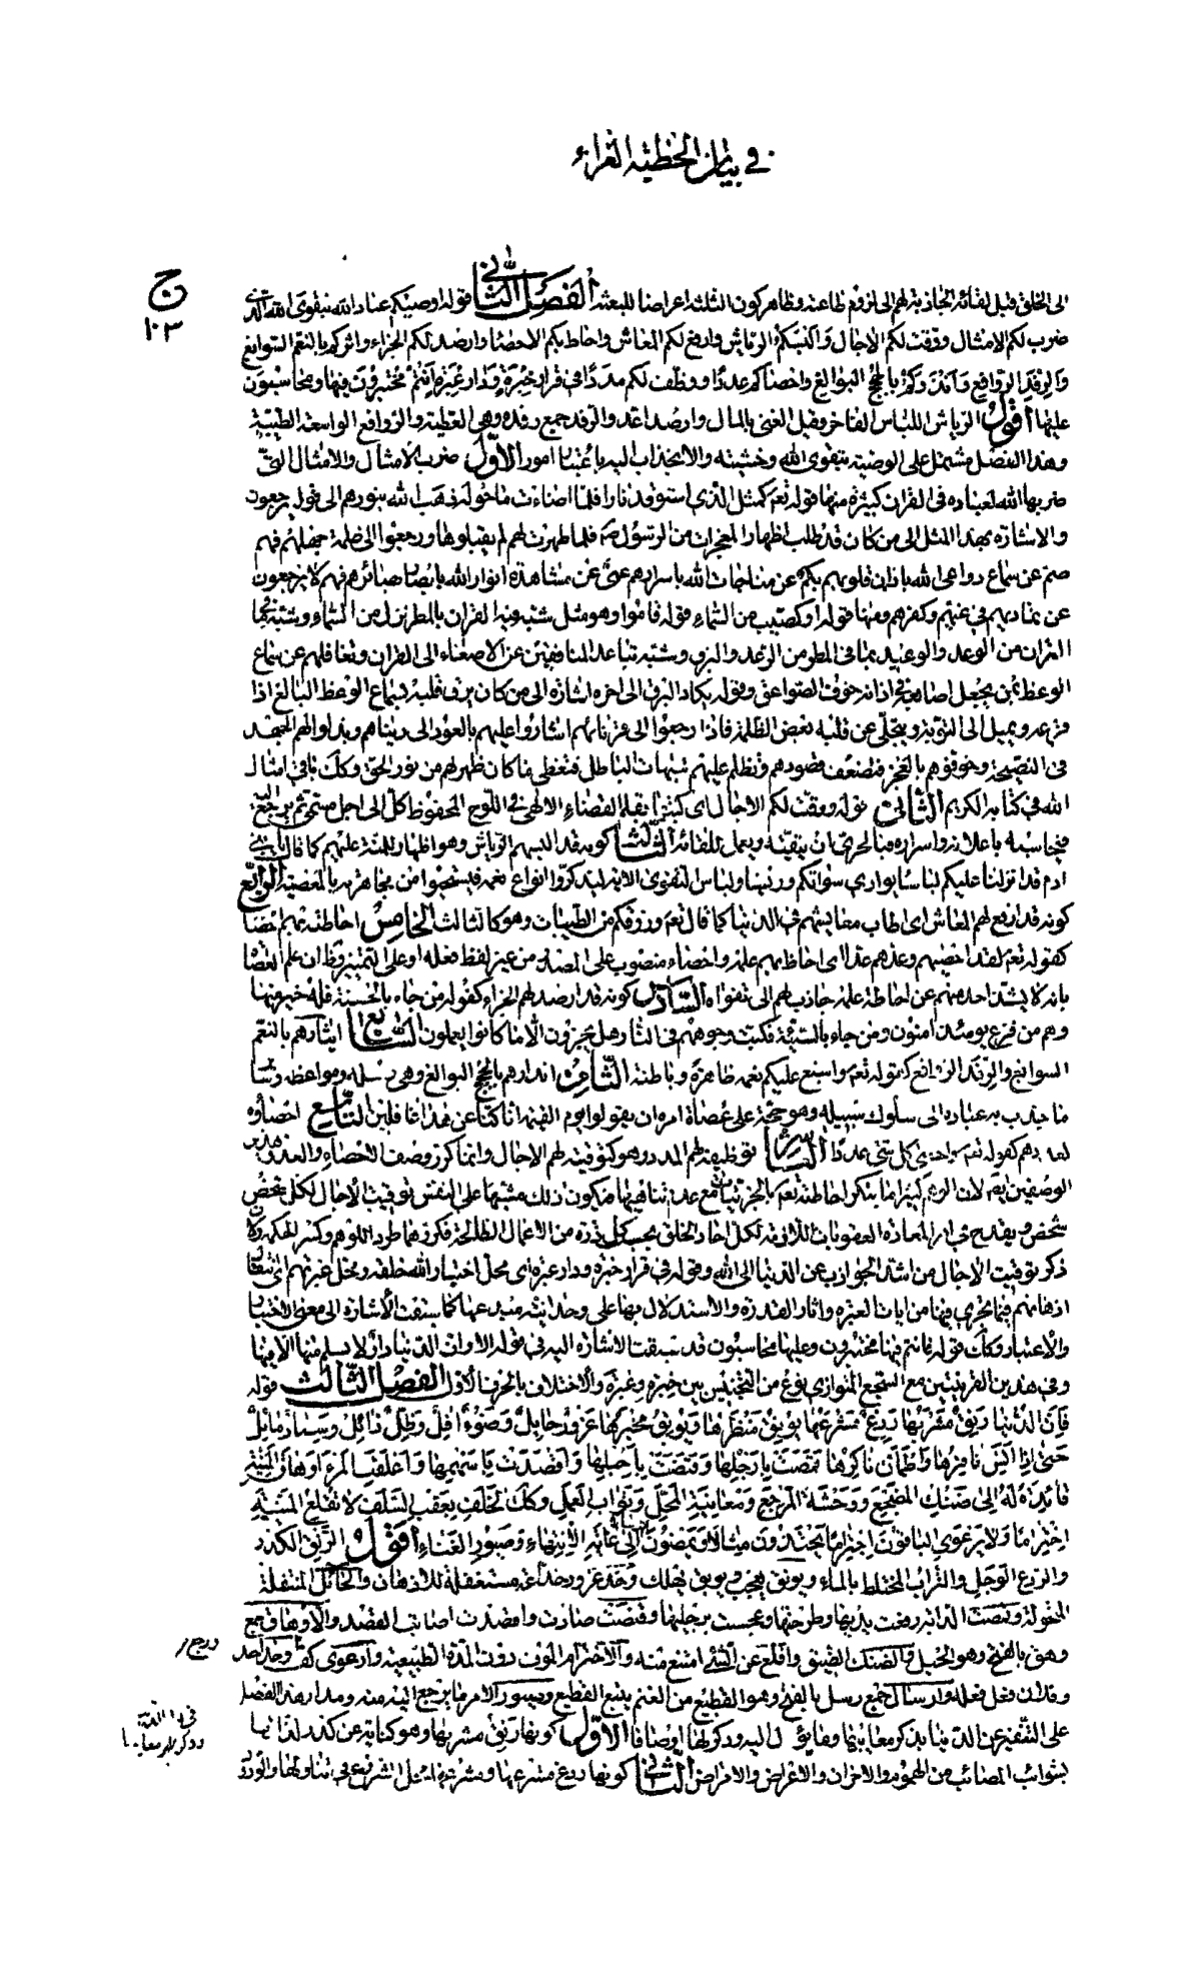 في بيان الخطبة الغراء
ج
١٠٣
الى الخلق قبل لقائه الجاذبة لهم الى لزوم طاعته وظاهر كون الثلثة اعراضا للبعثة الفصل الثاني قوله اوصيكم عباد الله بتقوى الله الذي
ضرب لكم الامثال ووقت لكم الآجال وألبسكم الرياش وارفع لكم المعاش واحاط بكم الاحصاء وارصد لكم الجزاء واثركم بالنعم السوابغ
والرفد الروافغ وأنذركم بالحجج البوالغ واحصاكم عددا ووظف لكم مددا في قرار خبرة ودار عبرة أنتم مختبرون فيها ومحاسبون
عليها أقول الرياش اللباس الفاخر وقيل الغنى بالمال وارصد اعد والرفد جمع رفدة وهي العطية والروافغ الواسعة الطيبة
وهذا الفصل مشتمل على الوصية بتقوى الله وخشيته والانجذاب اليه باعتبار امور الاول ضرب الامثال والامثال التي
ضربها الله لعباده في القران كثيرة منها قوله تعم كمثل الذي استوقد نارا فلما اضاءت ما حوله ذهب الله بنورهم الى قوله يرجعون
والاشارة بهذا المثل الى من كان قد طلب اظهار المعجزات من الرسول صم فلما ظهرت لهم لم يقبلوها ورجعوا الى ظلمة جهلهم فهم
صم عن سماع دواعي الله باذان قلوبهم بكم عن مناجات الله باسرارهم عمى عن مشاهدة انوار الله بابصار بصائرهم فهم لا يرجعون
عن تماديهم في غيهم وكفرهم ومنها قوله او كصيب من السماء قوله قاموا وهو مثل شبه فيه القران بالمطر نزل من السماء وشبه ما
القران من الوعد والوعيد بما في المطر من الرعد والبرق وشبه تباعد المنافقين عن الاصغاء الى القران وتغافلهم عن سماع
الوعظ بمن يجعل اصابعه في اذانه خوف الصواعق وقوله يكاد البرق الى اخره اشارة الى من كان يرق قلبه بسماع الوعظ البالغ اذا
قرعه ويميل الى التوبة ويتجلى عن قلبه بعض الظلمة فاذا رجعوا الى قرنائهم اشاروا عليهم بالعود الى دنياهم وبذلوا لهم الجهد
في النصيحة وخوفوهم بالعجز فتضعف قصودهم وتظلم عليهم شبهات الباطل فتغطى ما كان ظهر لهم من نور الحق وكك باقي امثال
الله في كتابه الكريم الثاني قوله ووقت لكم الآجال اى كتبها بقلم القضاء الالهي في اللوح المحفوظ كل الى اجل مسمى ثم يرجع اليه
فيحاسبه باعلانه واسراره فبالحري ان يتقيه ويعمل للقائه الثالث كونه قد البسهم الرياش وهو اظهار للمنة عليهم كما قال يا بني
ادم قد انزلنا عليكم لباسا يواري سواتكم وريشا ولباس التقوى الاية ليذكروا انواع نعمه فيستحيوا من مجاهرته بالمعصية الرابع
كونه قد ارفع لهم المعاش اى اطاب معايشهم في الدنيا كما قال تعم ورزقكم من الطيبات وهو كالثالث الخامس احاطته بهم احصاء
كقوله تعم لقد احصيهم وعدهم عدا اى احاط بهم علمه واحصاء منصوب على المصدر من غير لفظ فعله او على التمييز وظ ان علم العصا
بانه لا يشذ احد منهم عن احاطة علمه جاذب لهم الى تقواه السادس كونه قد ارصد لهم الجزاء كقوله من جاء بالحسنة فله خير منها
وهم من فزع يومئذ امنون ومن جاء بالسيئة فكبت وجوههم في النار هل يجزون الا ما كانوا يعملون السابع ايثارهم بالنعم
السوابغ والرفد الروافغ كقوله تعم واسبغ عليكم نعمه ظاهرة وباطنة الثامن انذارهم بالحجج البوالغ وهي رسله ومواعظه وسائر
ما جذب به عباده الى سلوك سبيله وهو حجة على عصاة امره ان يقولوا يوم القيمة انا كنا عن هذا غافلين التاسع احصاؤه
لعددهم كقوله تعم واحصى كل شئ عددا العاشر توظيفه لهم المدد وهو كتوقيته لهم الآجال وانما كرر وصف الاحصاء والعد
الوصفين ايضا لان الوهم كثيرا ما ينكر احاطته تعم بالجزئيات مع عدم تناهيها فيكون ذلك مشبها على النفس توقيت الآجال لكل شخص
شخص ويقدح في امر المعاد والعقوبات اللازمة لكل احاد الخلق بحسب كل ذرة من الاعمال الطالحة فكررهما طردا للوهم وكسرا لحكمه
ذكر توقيت الآجال من اشد الجواذب عن الدنيا الى الله وقوله في قرار خبرة ودار عبرة اى محل اختبار الله خلقه ومحل عبرتهم اى انتقال
اذهانهم فيما يجري فيها من ايات العبرة واثار القدرة والاستدلال بها على وحدانية مبدعها كما سبقت الاشارة الى معنى الاختبار
والاعتبار وكك قوله فانتم فيها مختبرون وعليها محاسبون قد سبقت الاشارة اليه في قوله الا وان الدنيا دار لا يسلم منها الا فيها
وفي هذين القرينتين مع السجع المتوازي نوع من التجنيس بين خبرة وعبرة والاختلاف بالحرف الاول الفصل الثالث قوله
فإن الدنيا رنق مشربها ردغ مشرعها يونق منظرها ويوبق مخبرها غرور حائل وضوء آفل وظل زائل وسناد مائل
حتى إذا أنس نافرها واطمأن ناكرها قمصت بأرجلها وقنصت بأحبلها وأقصدت بأسهمها وأعلقت المرء أوهاق المنية
قائدة له إلى ضنك المضجع ووحشة المرجع ومعاينة المحل وثواب العمل وكذلك الخلف يعقب السلف لا تقلع المنية
اختراما ولا يرعوي الباقون اجتراما يحتذون مثالا ويمضون أرسالا إلى غاية الانتهاء وصيور الفناء أقول الرنق الكدر
والردغ الوحل والتراب المختلط بالماء ويونق يعجب ويوبق يهلك
وقنصت صادت واقصدت اصابت القصد والاوهاق جمع
وهق بالفتح وهو الحبل والضنك الضيق واقلع عن الشئ امتنع منه والاخترام الموت دون المدة الطبيعية وارعوى كف
وارسال جمع رسل بالفتح وهو القطيع من الغنم يتبع القطيع وصيور الامر ما يرجع اليه منه ومدار هذا الفصل
على التنفير عن الدنيا بذكر معايبها وما يؤل اليه وذكر لها اوصافا الاول كونها رنق مشربها وهو كناية عن كدر لذاتها
بشوائب المصائب من الهموم والاحزان والاعراض والامراض الثاني كونها ردغ مشرعها